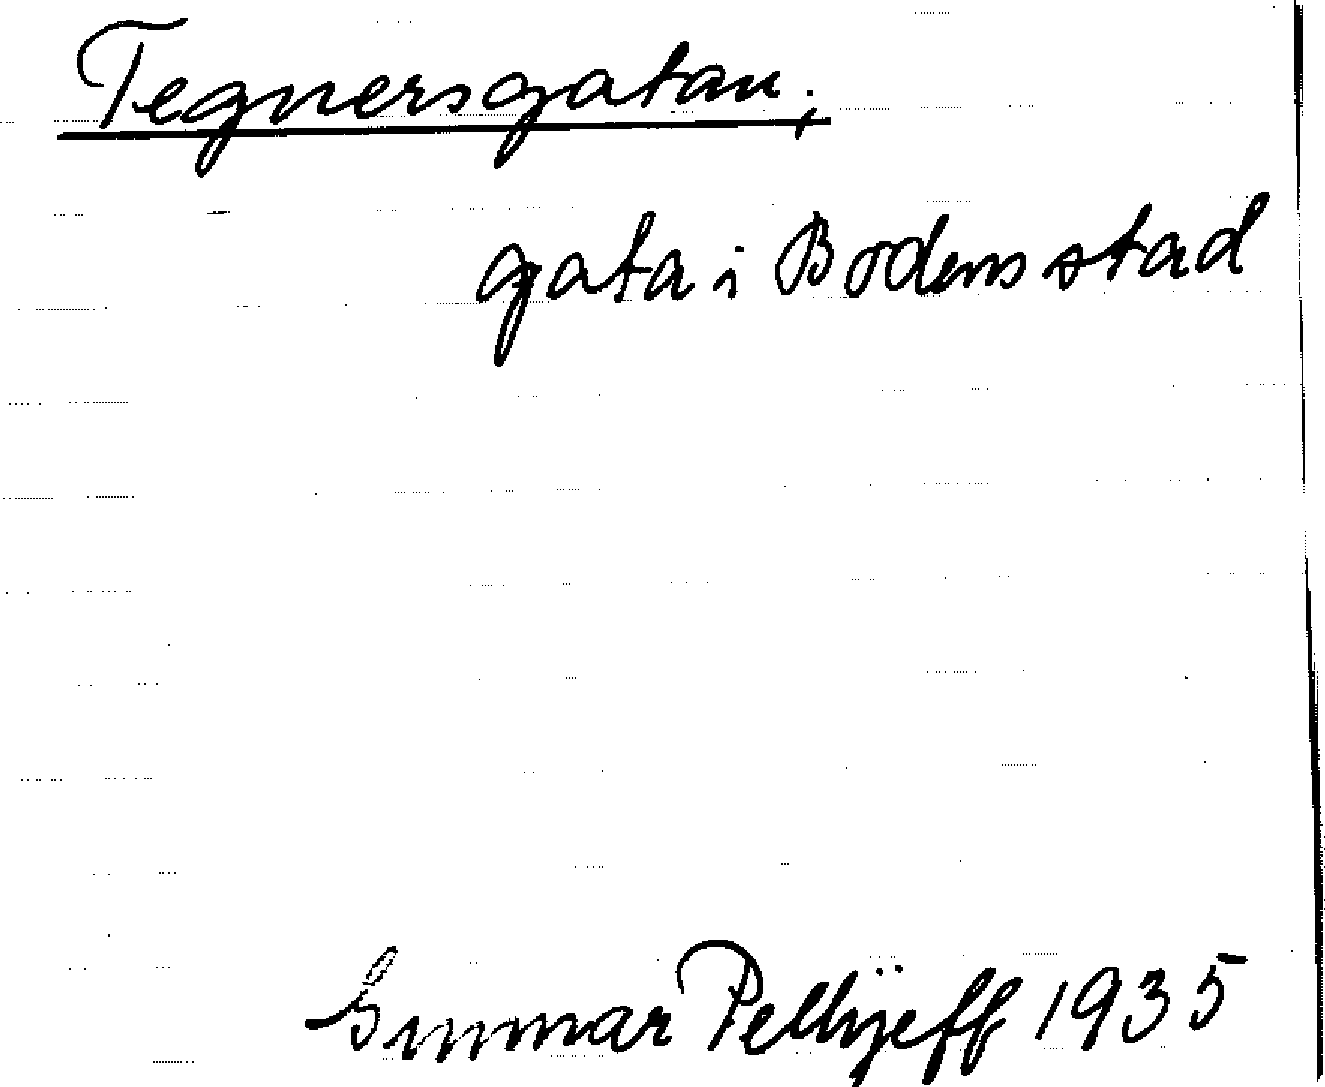 Tegnersgatan;
gata i Bodens stad
Gunnar Pellijeff 1935